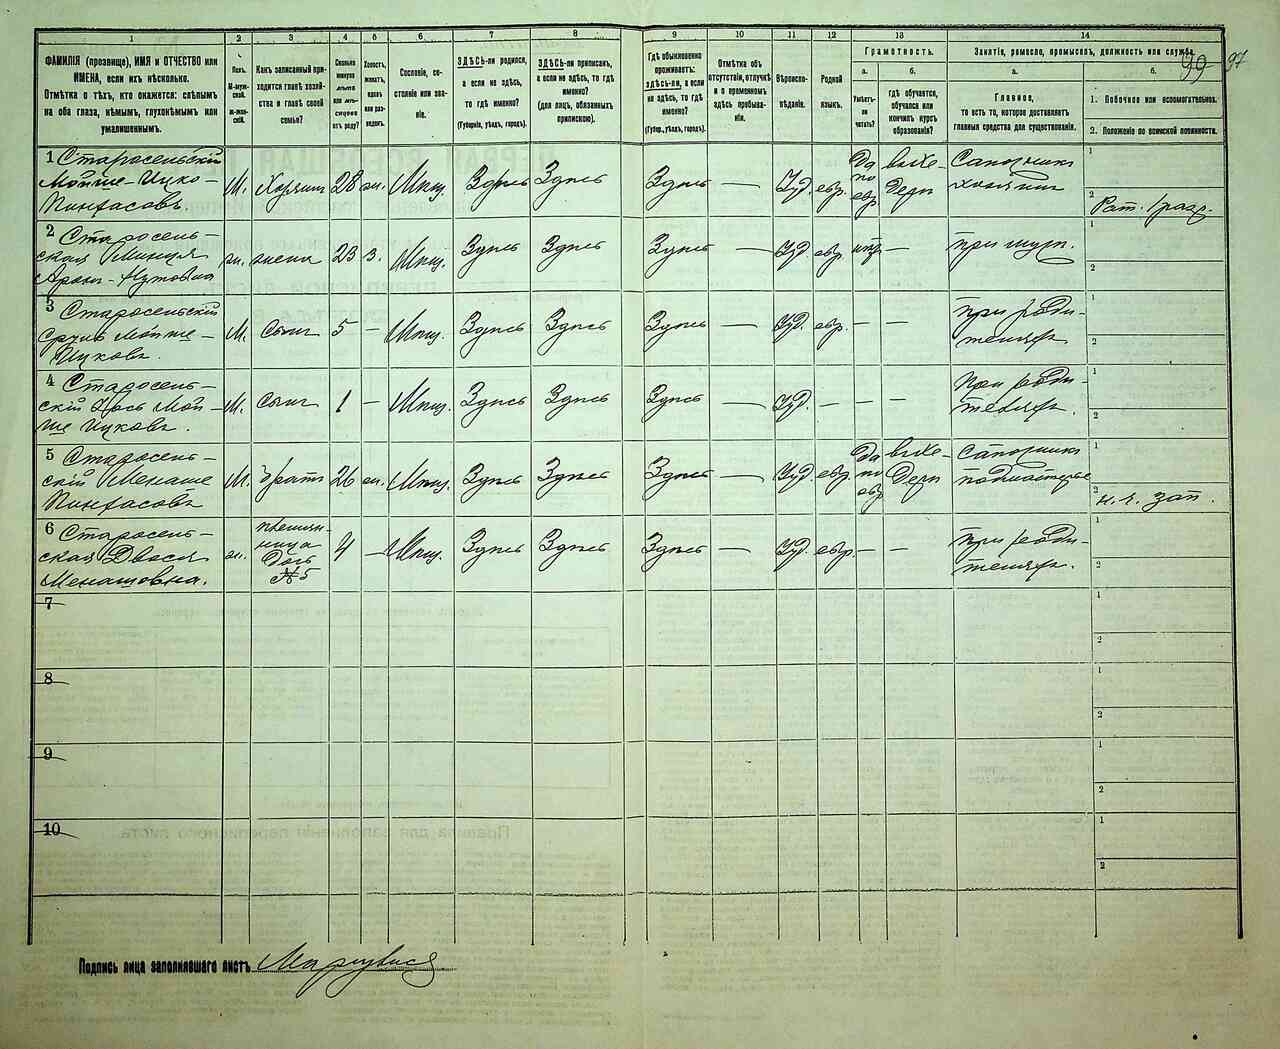 1 2 3 4 5 6 7 8 9 10 11 12 13 14
ФАМИЛІЯ (прозвище), ИМЯ и ОТЧЕСТВО или
ИМЕНА, если ихъ нѣсколько.
Отмѣтка о тѣхъ, кто окажется: слѣпымъ
на оба глаза, нѣмымъ, глухонѣмымъ или
умалишеннымъ.
Полъ.
М-муж-
ской.
Ж-жен-
скій.
Какъ записанный при-
ходится главѣ хозяй-
ства и главѣ своей
семьи?
Сколько
минуло
лѣтъ
или мѣ-
сяцевъ
отъ роду?
Холостъ,
женатъ,
вдовъ
или раз-
веденъ.
Сословіе, со-
стояніе или зва-
ніе.
ЗДѢСЬ-ли родился,
а если не здѣсь,
то гдѣ именно?
(Губернія, уѣздъ, городъ).
ЗДѢСЬ-ли приписанъ,
а если не здѣсь, то гдѣ
именно?
(для лицъ, обязанныхъ
припискою).
Гдѣ обыкновенно
проживаетъ:
ЗДѢСЬ-ли, а если
не здѣсь, то гдѣ
именно?
(Губер., уѣздъ, гор.).
Отмѣтка объ
отсутствіи, отлучкѣ
и о временномъ
здѣсь пребыва-
ніи.
Вѣроиспо-
вѣданіе.
Родной
языкъ.
Грамотность.
а. б.
Умѣетъ-
ли
читать?
гдѣ обучается,
обучался или
кончилъ курсъ
образованія?
Занятіе, ремесло, промыселъ, должность или служба.
99 97
а. б.
Главное,
то есть то, которое доставляетъ
главныя средства для существованія.
1. Побочное или вспомогательное.
2. Положеніе по воинской повинности.
1 Старосельскій
Мойше-Ицко-
Пинхасовъ.
М. Хозяинъ 28 жн. Мѣщ. Здѣсь Здѣсь Здѣсь — Iуд. евр. Да по евр. въ Хе-
дерѣ Сапожникъ
хозяинъ
1
2 Рат. 1 разр.
2 Старосель-
ская Минця
Арон-Нутовна
ж. жена 23 з. Мѣщ. Здѣсь Здѣсь Здѣсь — Iуд. евр. нѣтъ — при муж.
1
2
3 Старосельскій
Мойше-
Ицковъ.
М. Сынъ 5 — Мѣщ. Здѣсь Здѣсь Здѣсь — Iуд. евр. — — при роди-
теляхъ
1
2
4 Старосель-
скій Мой-
ше Ицковъ.
М. Сынъ 1 — Мѣщ. Здѣсь Здѣсь Здѣсь — Iуд. — — — при роди-
теляхъ.
1
2
5 Старосель-
скій Менаше
Пинхасовъ
М. братъ 26 жн. Мѣщ. Здѣсь Здѣсь Здѣсь — Iуд. евр. Да по евр. въ Хе-
дерѣ Сапожникъ
подмастерье
1
2 н. ч. зап.
6 Старосель-
ская Двося
Менашовна.
ж. племян-
ница
Дочь
№ 5 4 — Мѣщ. Здѣсь Здѣсь Здѣсь — Iуд. евр. — — при роди-
теляхъ.
1
2
7
1
2
8
1
2
9
1
2
10
1
2
Подпись лица заполнявшаго листъ